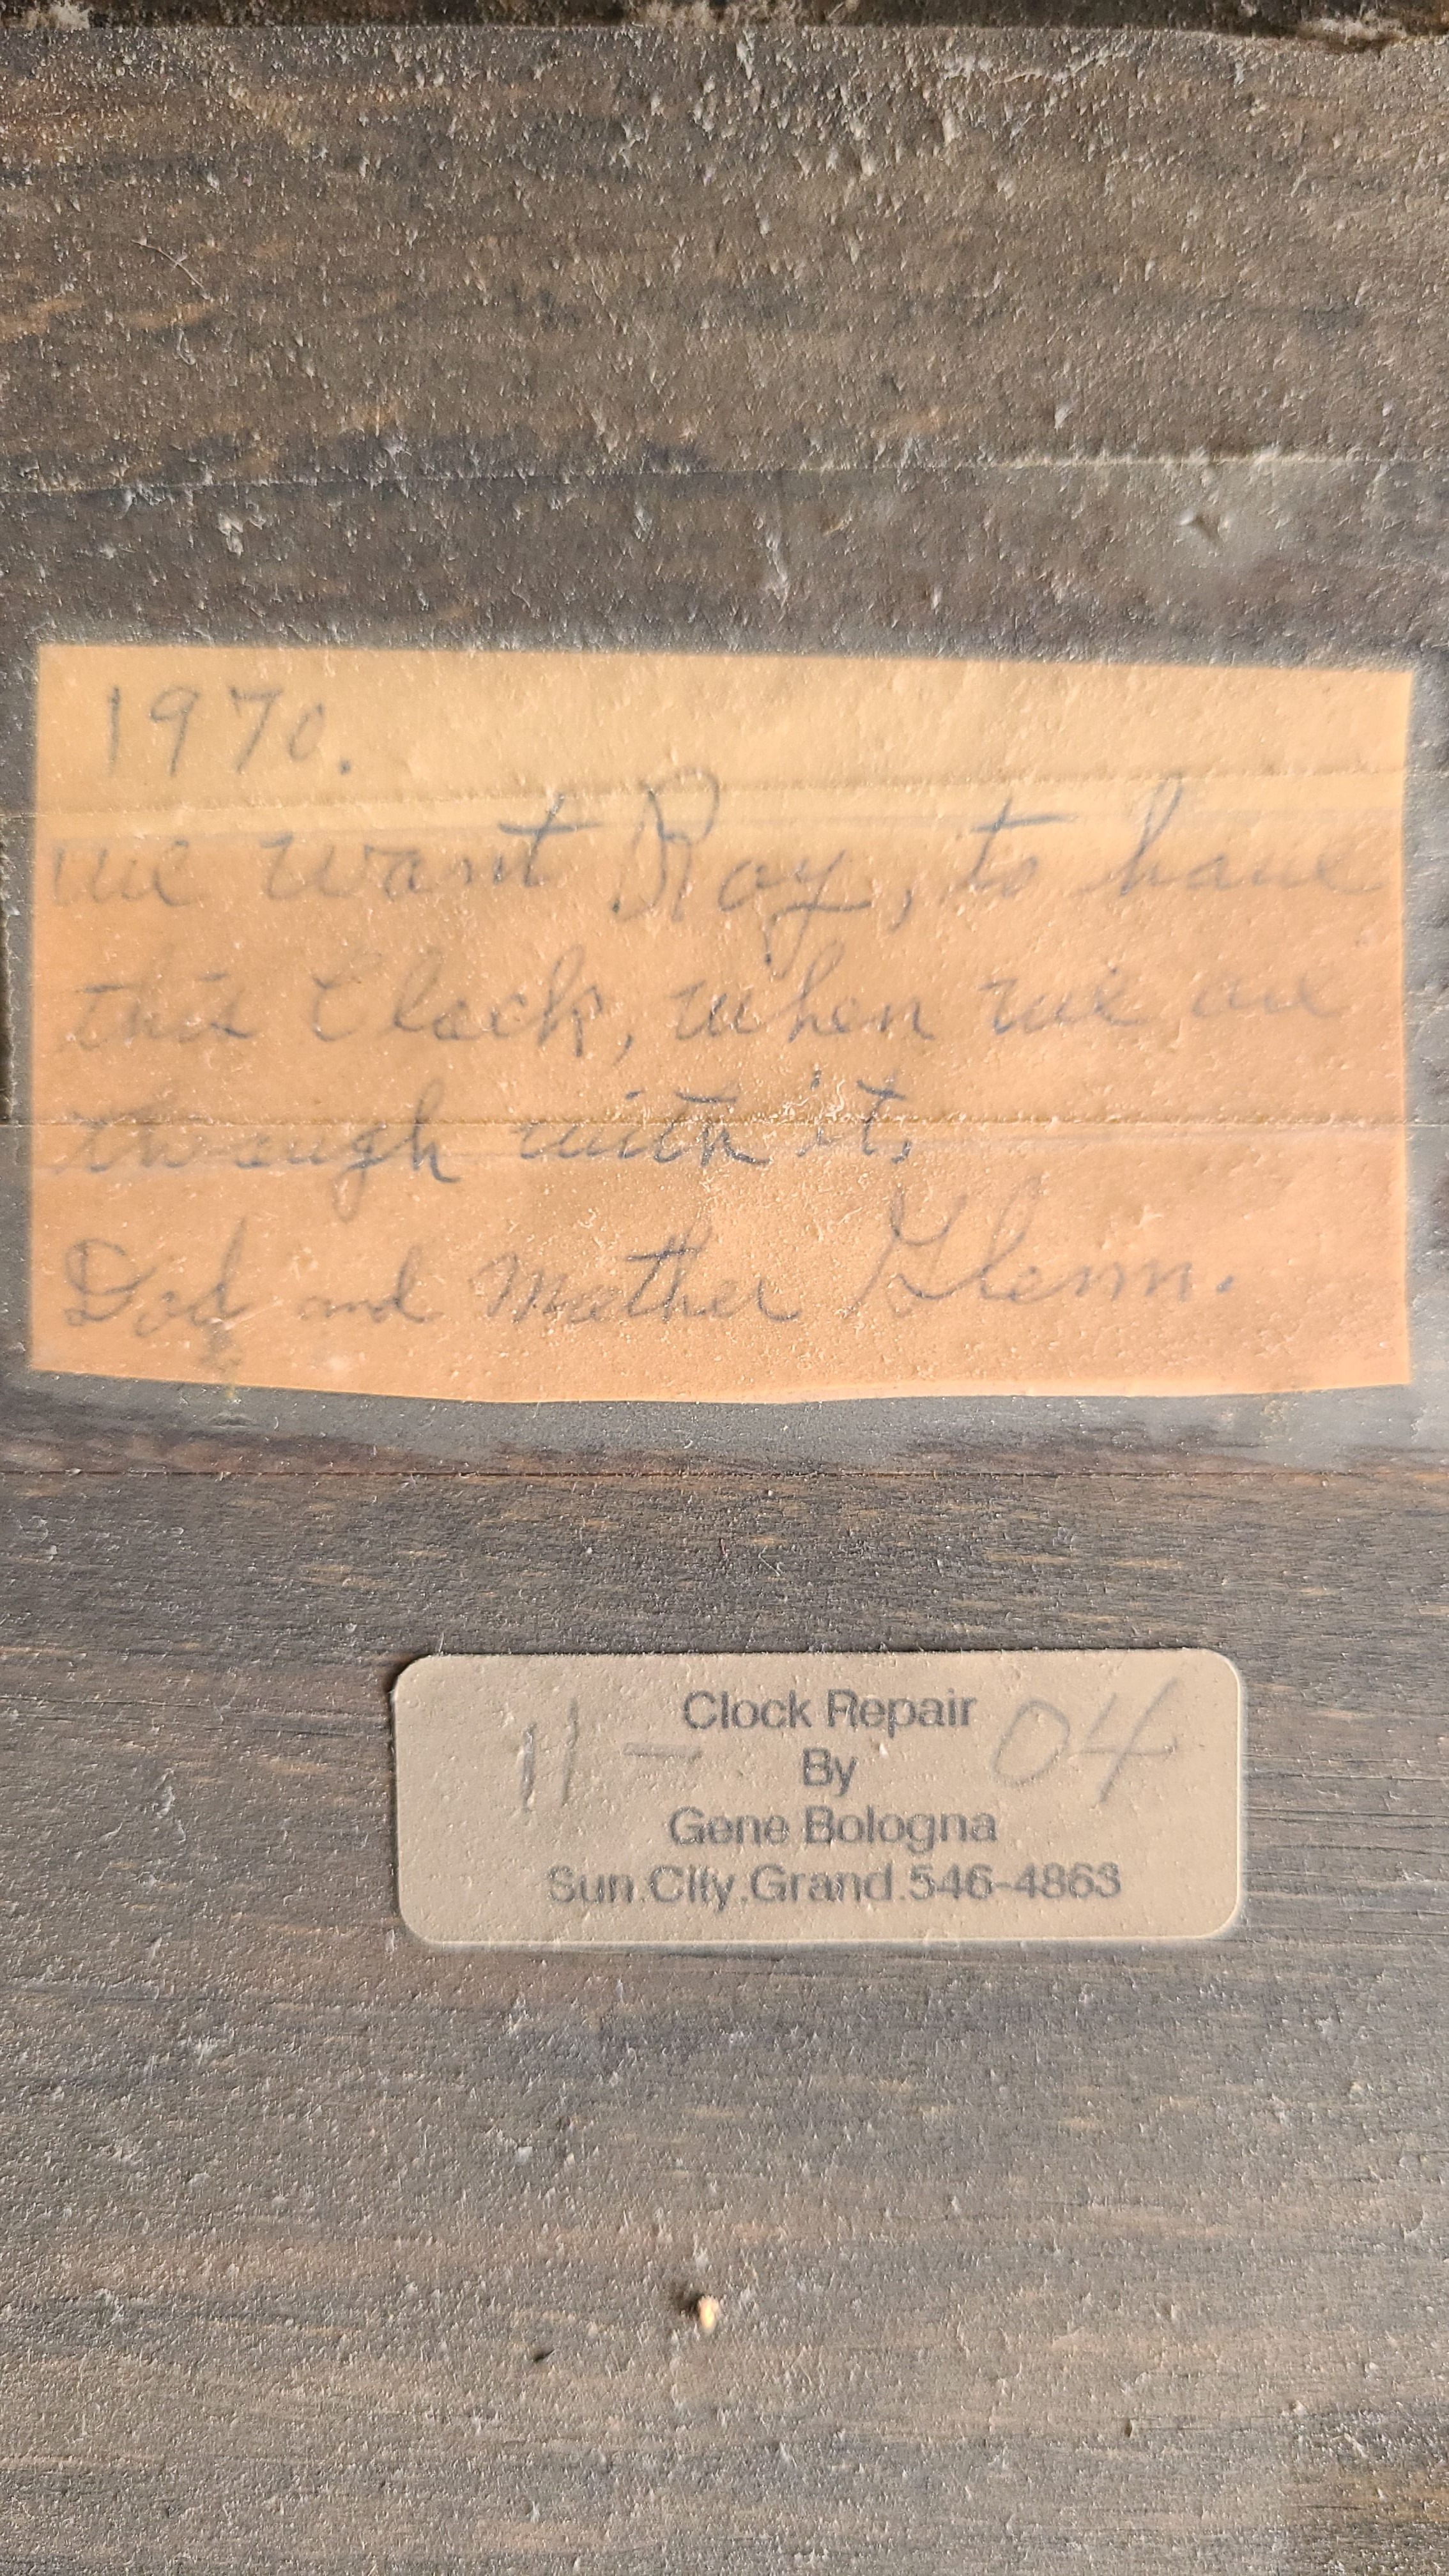 1970.
we want Roy, to have
this Clock, when we are
through with it,
Dad and Mother Glenn.
Clock Repair
11 - 04
By
Gene Bologna
Sun.City.Grand.546-4863